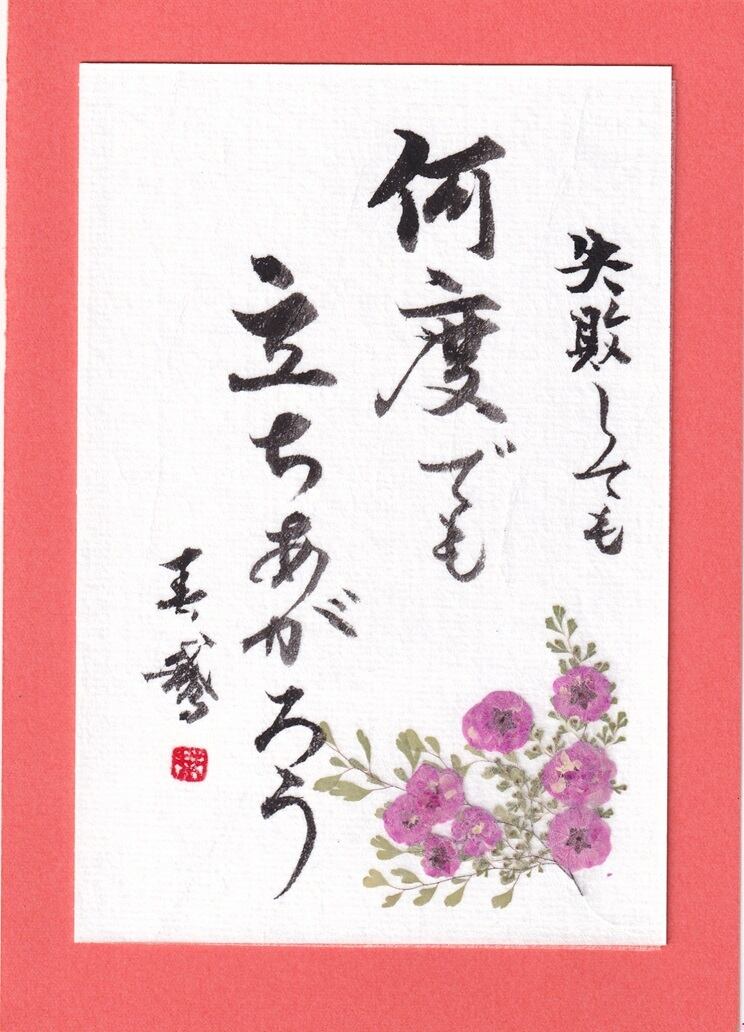 失敗しても
何度でも
立ちあがろう